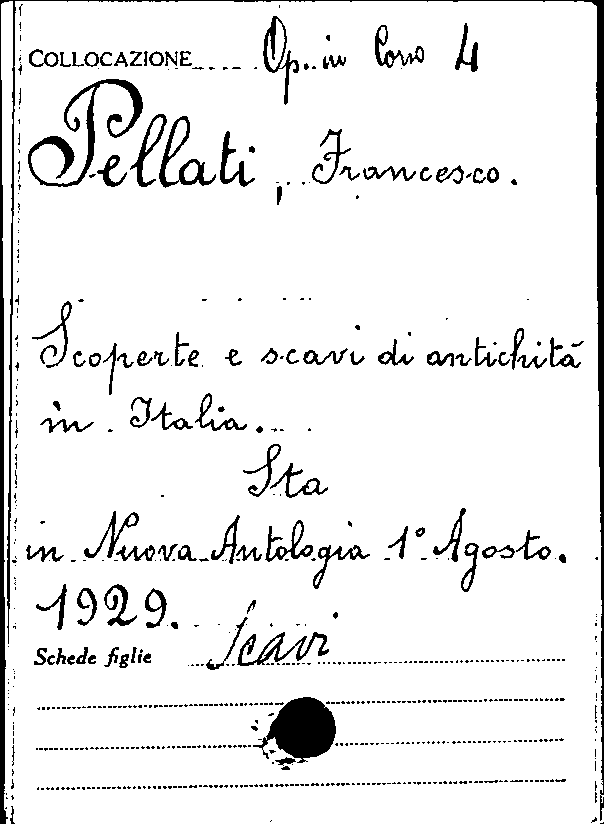 COLLOCAZIONE Op. in Corso 4
Pellati, Francesco.
Scoperte e scavi di antichità
in Italia.
Sta
in Nuova Antologia 1° Agosto.
1929.
Schede figlie Scavi